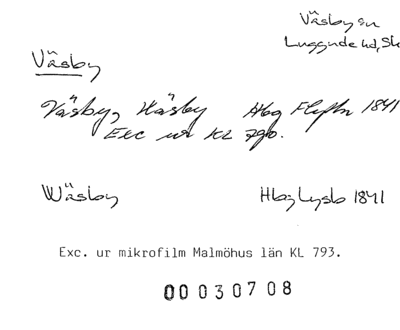 Väsby sn
Luggude hd, Sk
Väsby
Väsby, Wäsby Hbg 1841
Exc ur KL 790.
Wäsby Hbg Lysb 1841
Exc. ur mikrofilm Malmöhus län KL 793.
00030708